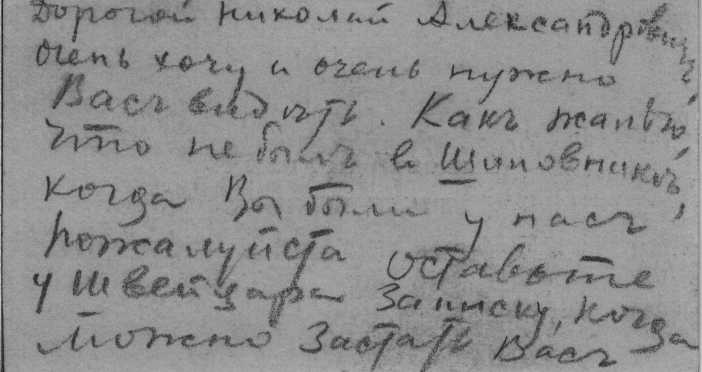 Дорогой Николай Александровичъ,
очень хочу и очень нужно
Васъ видѣть. Какъ жалѣю,
что не былъ в Шиповникѣ,
когда Вы были у насъ,
пожалуйста оставьте
у швейцара записку, когда
можно застать Васъ